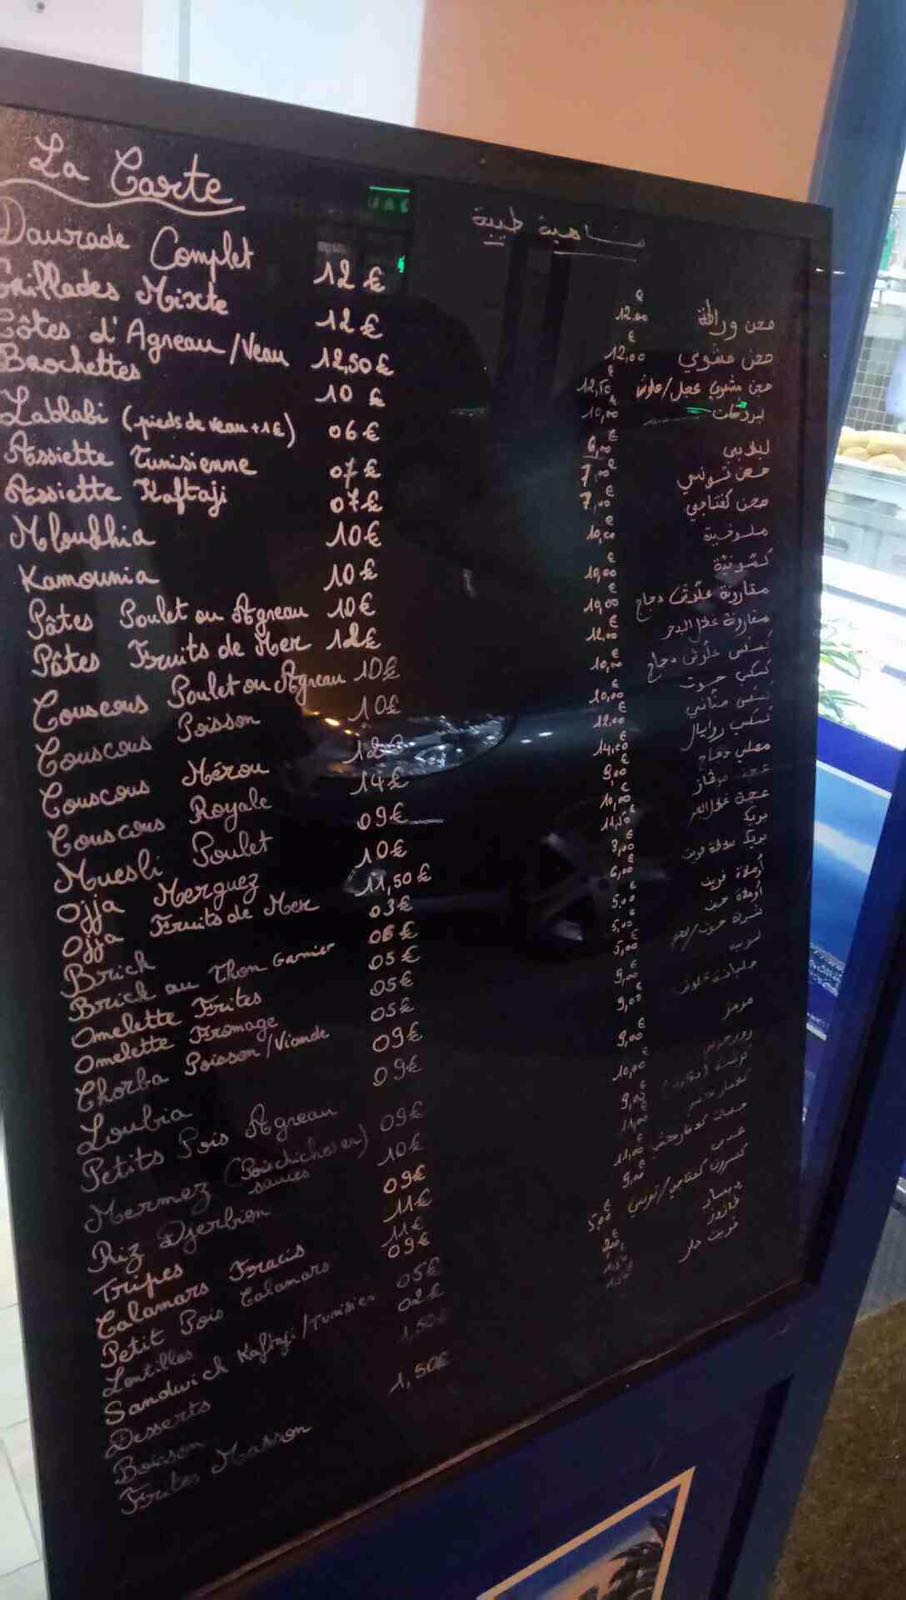 La Carte
شاهية طيبة
Daurade Complet 12€
Grillades Mixte 12€
Côtes d'Agneau/Veau 12,50€
Brochettes 10€
Lablabi (pieds de veau +1€) 06€
Assiette Tunisienne 07€
Assiette Kaftaji 07€
Mloukhia 10€
Kamounia 10€
Pâtes Poulet ou Agneau 10€
Pâtes Fruits de Mer 12€
Couscous Poulet ou Agneau 10€
Couscous Poisson 10€
Couscous Mérou 12€
Couscous Royale 14€
Muesli Poulet 09€
Ojja Merguez 10€
Ojja Fruits de Mer 11,50€
Brick 03€
Brick au Thon Garnier 06€
Omelette Frites 05€
Omelette Fromage 05€
Chorba Poisson/Viande 05€
Loubia 09€
Petits Pois Agneau 09€
Mermez (Pois chiches en sauces) 09€
Riz Djerbien 10€
Tripes 09€
Calamars Fracis 11€
Petit Pois Calamars 11€
Lentilles 09€
Sandwich Kaftaji/Tunisien 05€
Desserts 02€
Boisson 1,50€
Frites Maison 1,50€
12,00€ صحن وراطة
12,00€ صحن مشوي
12,50€ صحن مشوي عجل/علوش
10,00€
6,00€ لبلابي
7,00€ صحن تونسي
7,00€ صحن كفتاجي
10,00€ ملوخية
10,00€ كمونية
10,00€ مقارونة علوش دجاج
12,00€ مقارونة غلال البحر
10,00€ كسكسي علوش دجاج
10,00€ كسكسي حوت
12,00€ كسكسي مناني
14,00€ كسكسي روايال
9,00€ مصلي دجاج
10,00€ عجة مرقاز
11,50€ عجة غلال البحر
3,00€ بريك
6,00€
5,00€
5,00€
5,00€
9,00€ لوبيا
9,00€
9,00€ مرمز
10,00€
9,00€
11,00€
11,00€
9,00€
5,00€